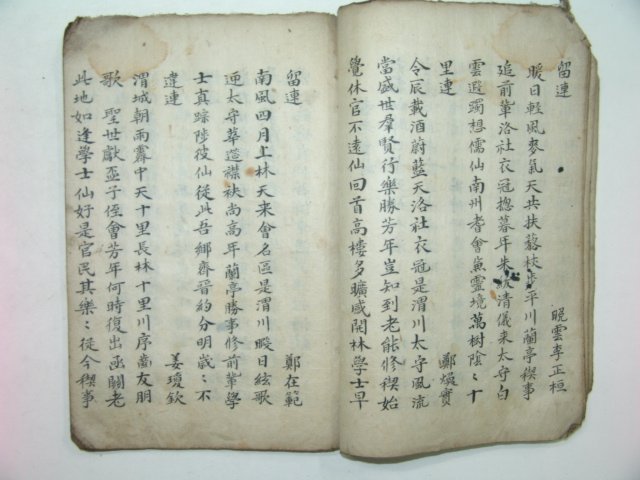 留連 晩雲李正桓
暖日輕風麥氣天共扶藜杖步平川蘭亭禊事
追前輩洛社衣冠摠暮年朱紱清儀来太守白
雲遐躅想儒仙南州耆會兼靈境萬樹陰〻十
里連 鄭煥實
令辰載酒蔚藍天洛社衣冠是渭川太守風流
當盛世羣賢行樂勝芳年豈知到老能修禊始
覺休官不遠仙回首高樓多曠感開林學士早
留連 鄭在範
南風四月上林天来會名區是渭川暇日絃歌
迎太守華筵襟袂尚高年蘭亭勝事修前輩學
士真踪陟彼仙從此吾鄉齋晉約分明歲〻不
違連 姜瓊欽
渭城朝雨霽中天十里長林十里川序齒友朋
歌聖世獻盃子侄會芳年何時復出函關老
此地如逢學士仙好是官民其樂〻從今禊事